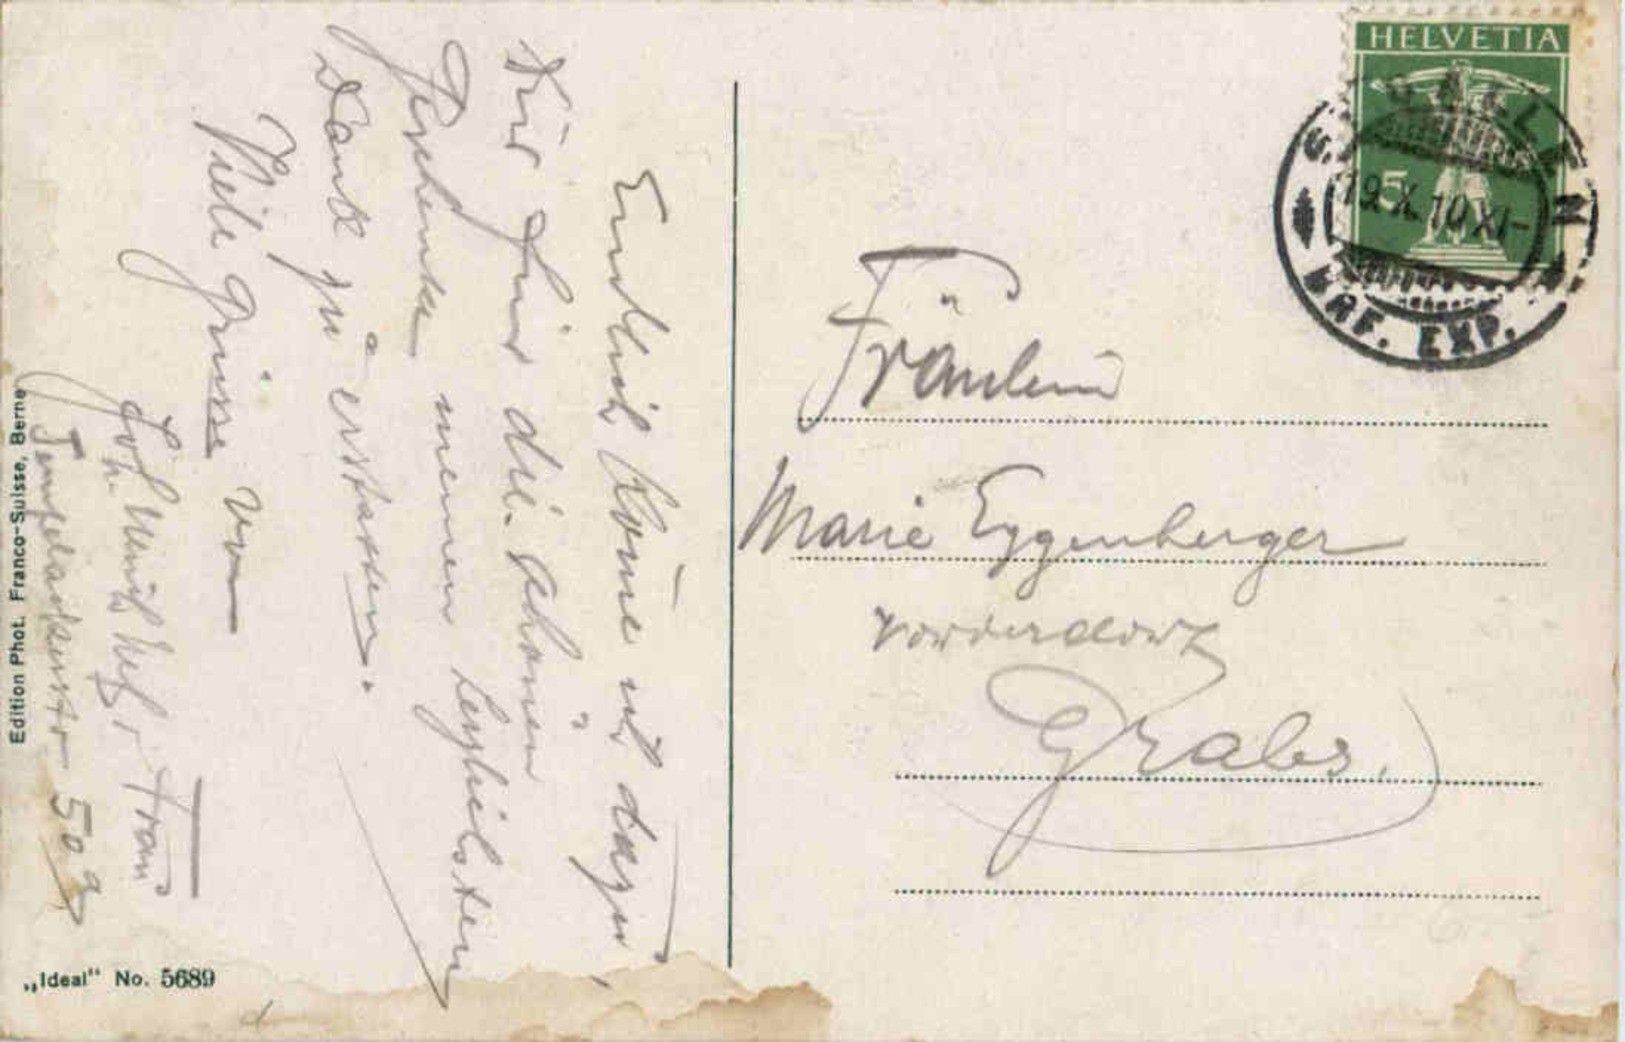 Endlich kome ich dazu,
Dir für die schönen
Geschenke meinen herzlichsten
Dank zu erstatten.
Viele Grüsse von
Frau
50a
Fräulein
Marie Eggenberger
Vorderdorf
Grabs.
HELVETIA
5
19.X.10.XI-
BRF. EXP.
Edition Phot. Franco-Suisse, Berne
„Ideal“ No. 5689